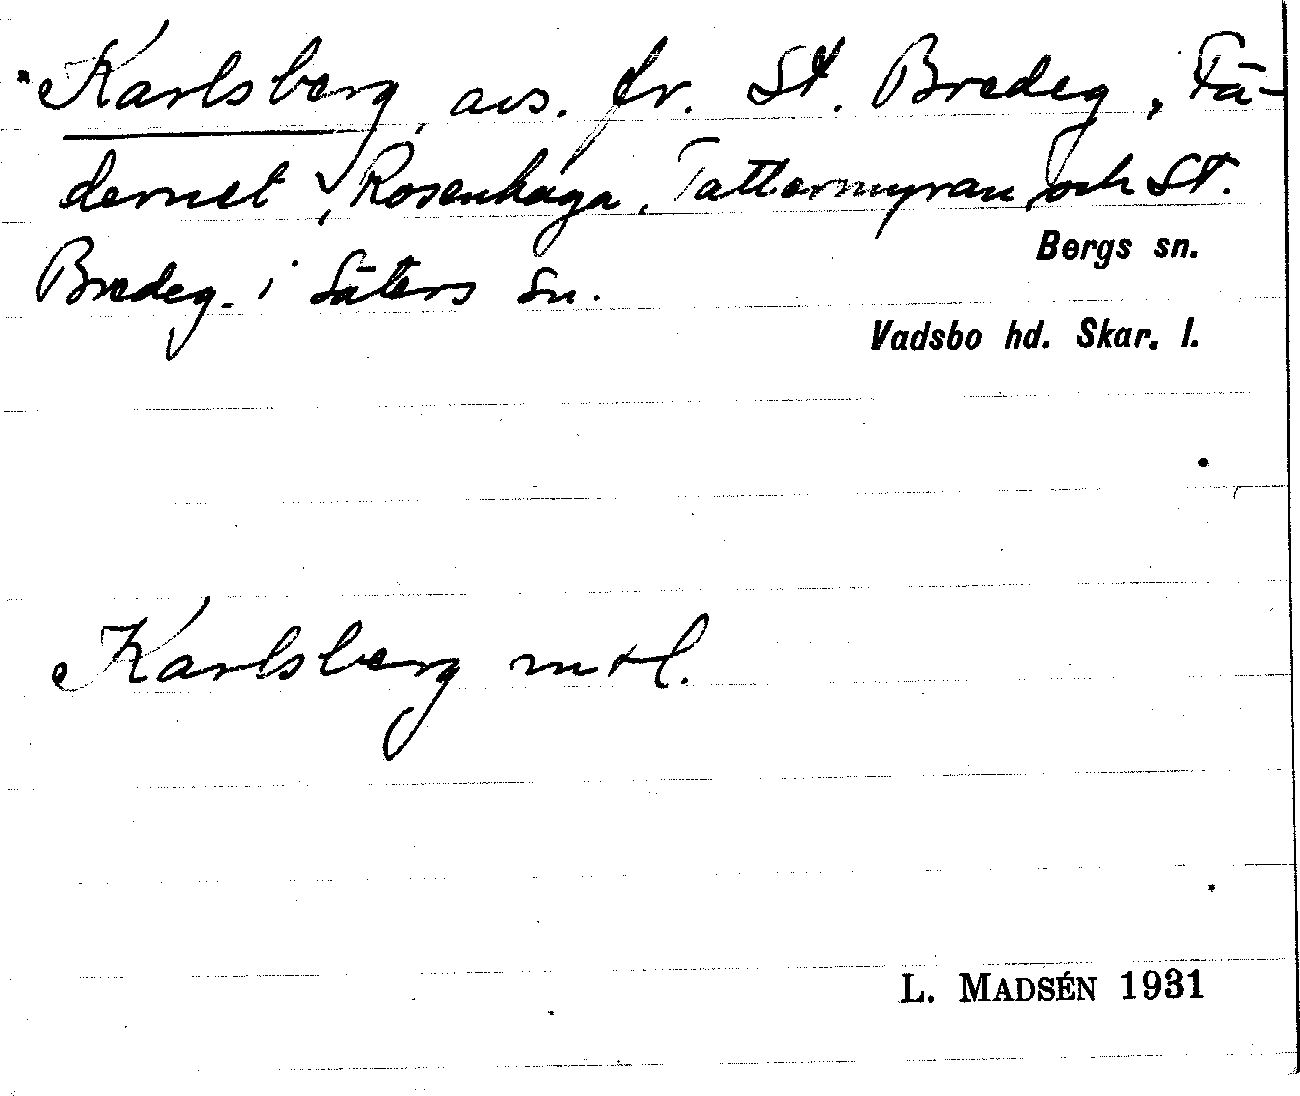 "Karlsberg, avs. fr. St. Bredeg, Fä-
dernet, Rosenhaga, Tattarmyran, och St.
Bergs sn.
Bredeg. i Säters sn.
Vadsbo hd. Skar. l.
Karlsberg
L. MADSÉN 1931